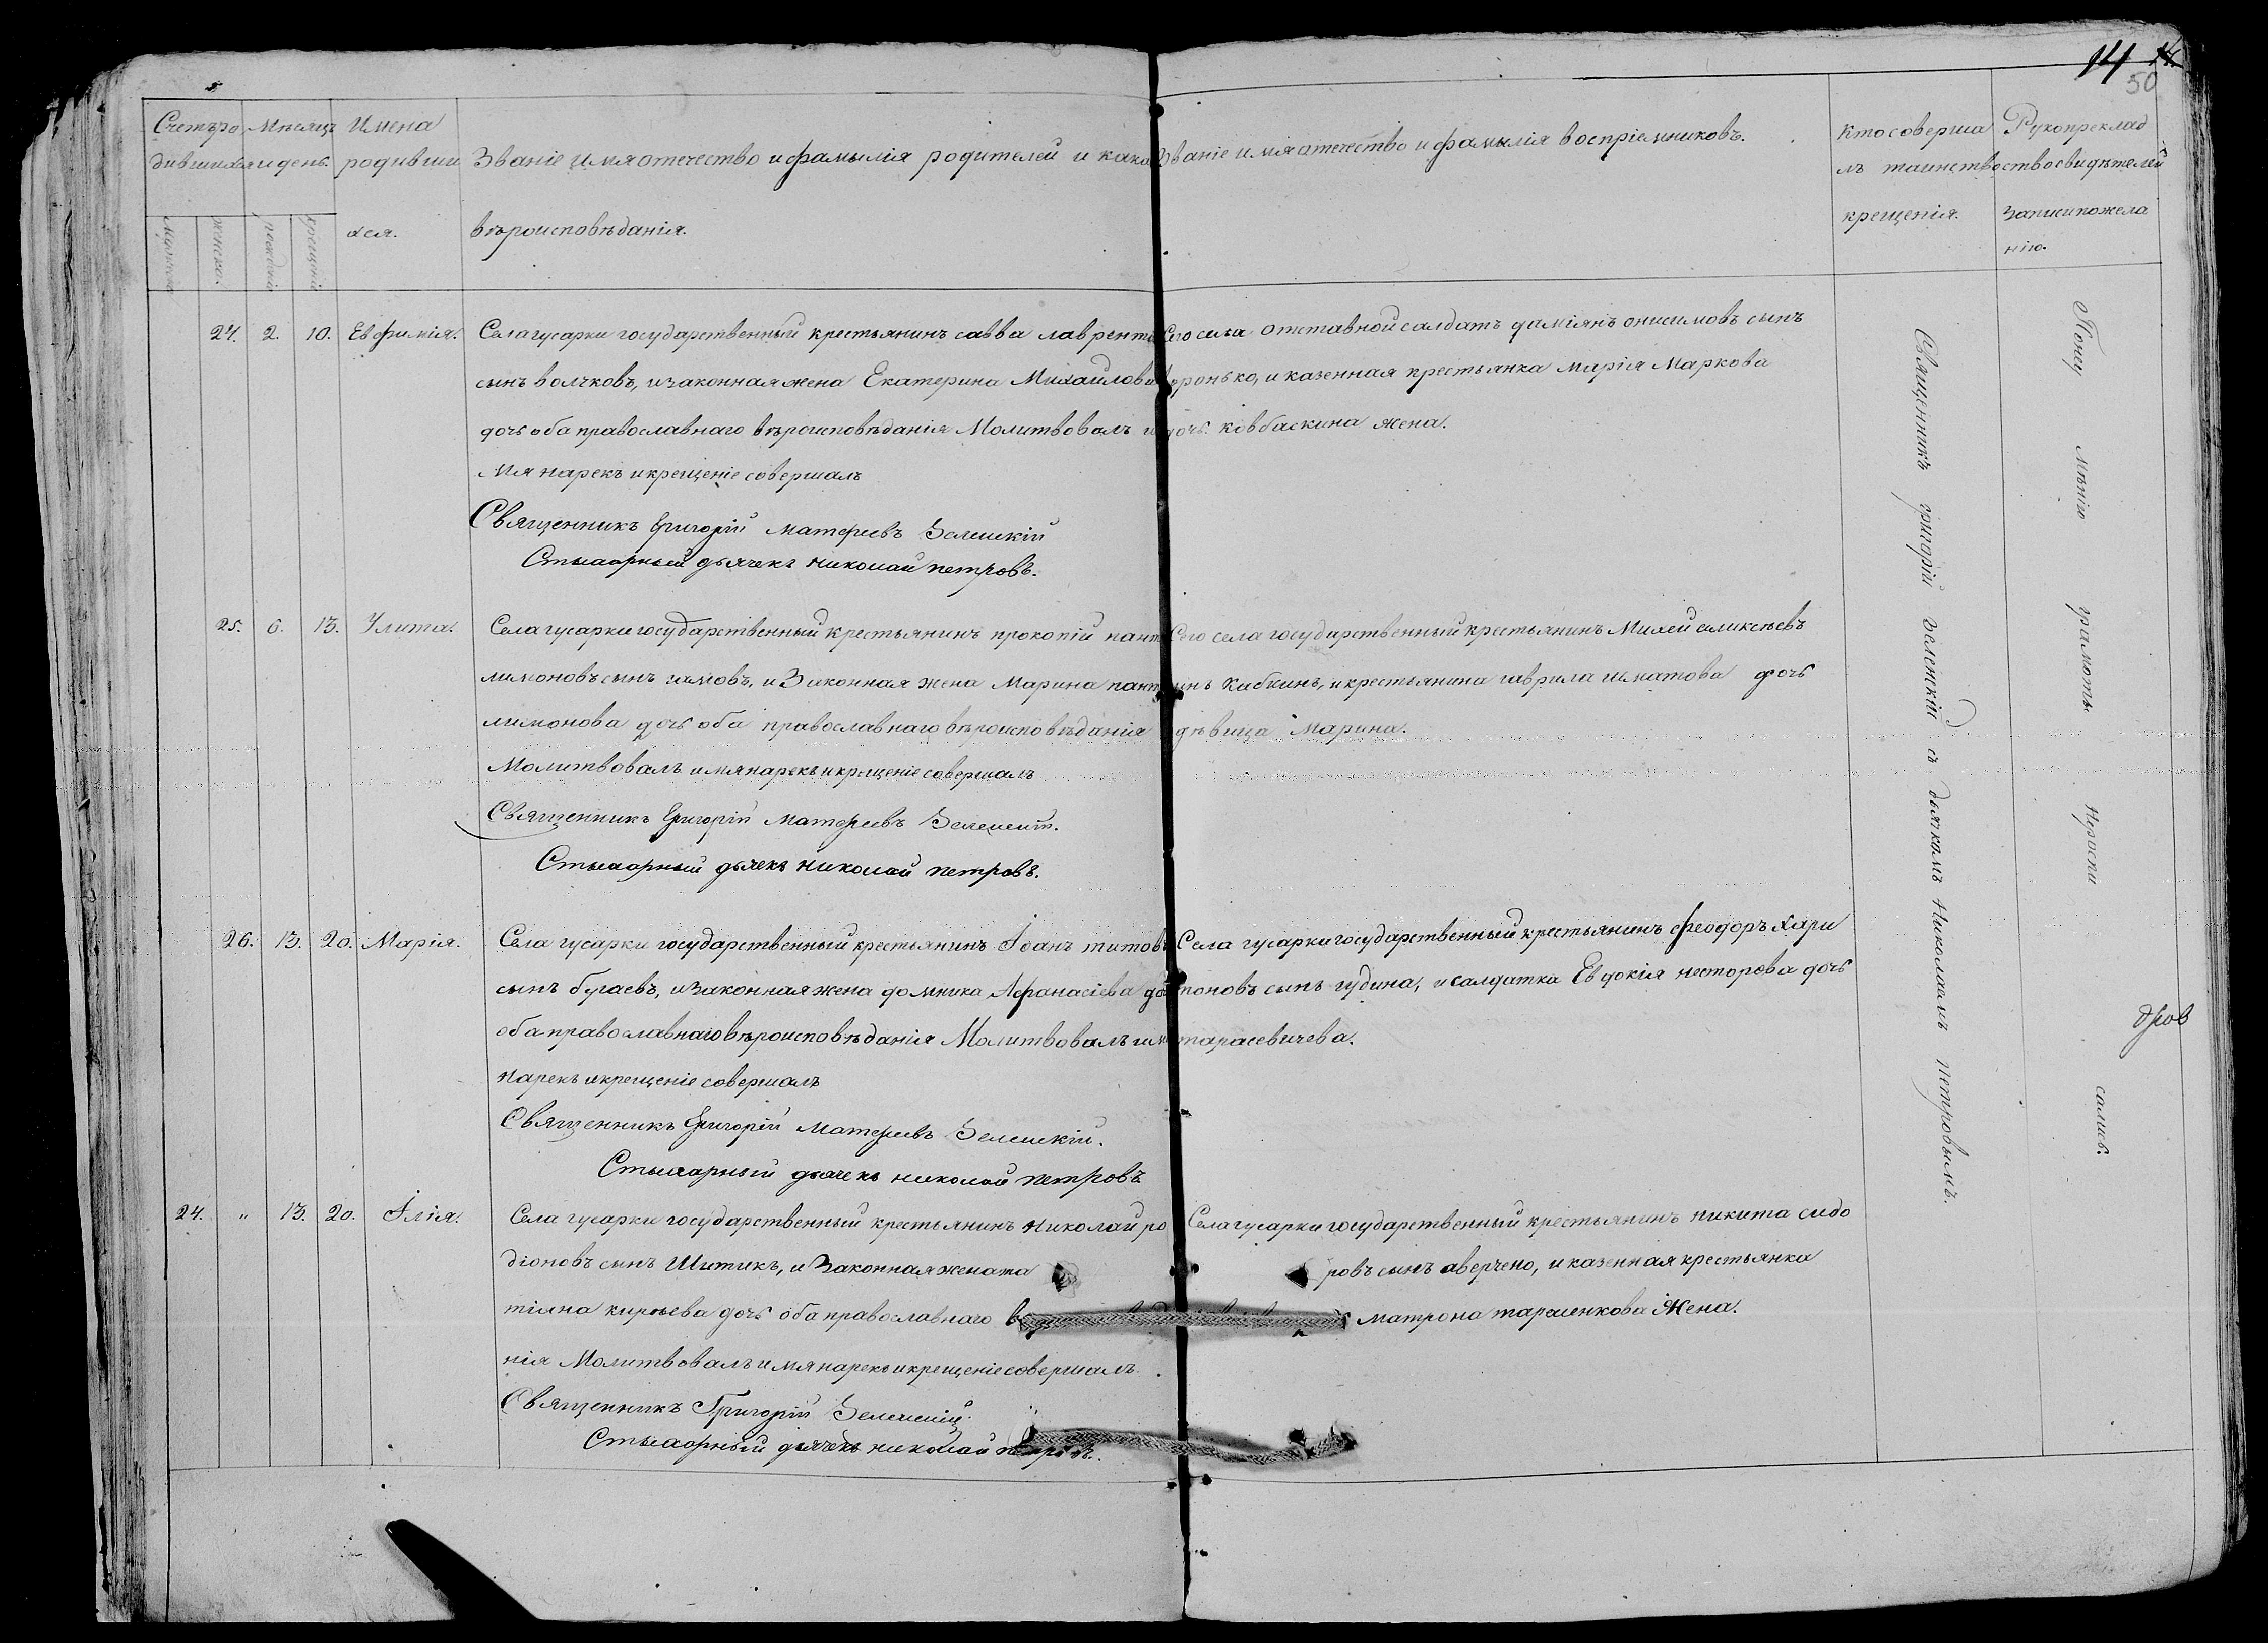 14 14.
50
Счетъ ро
дившихся
Мѣсяцъ
и день.
Имена
родивши
хся.
Званіе имя отечество и фамылія родителей и кака
вѣроисповѣданія.
Званіе имя отечество и фамылія воспріемниковъ.
Кто соверша
лъ таинство
крещенія.
Рукопреклад
ство свидѣтелей
записи по жела
нію.
женско.
рожденія
крещенія
24. 2. 10. Евфимія.
Села гусарки государственный крестьянинъ савва лавренть
сынъ волчковъ, и законная жена Екатерина Михайлова
дочь оба православнаго вѣроисповѣданія Молитвовалъ и
Мя нарекъ и крещеніе совершалъ
Священникъ Григорій Матфеевъ Зеленскій
Стихарный дьячекъ николай петровъ.
Сего села отставной салдатъ даміянъ онисимовъ сынъ
оронько, и казенная крестьянка Марія Маркова
дочь ковбаскина жена.
25. 6. 13. Улита.
Села гусарки государственный крестьянинъ прокопій пант
лимоновъ сынъ, и Законная жена Марина пант
лимонова дочь оба православнаго вѣроисповѣданія
Молитвовалъ имя нарекъ и крещеніе совершалъ
Священникъ Григорій Матфеевъ
Стихарный дьячекъ николай петровъ.
Сего села государственный крестьянинъ Михей аликсѣевъ
инъ Кибкинъ, и крестьянина гаврила игнатова дочь
дѣвица Марина.
26. 13. 20. Марія.
Села гусарки государственный крестьянинъ Іоанъ титовъ
сынъ бугаевъ, и законная жена домника Афанасіева до
оба православнаго вѣроисповѣданія Молитвовалъ им
нарекъ и крещеніе совершалъ
Священникъ Григорій Матфеевъ Зеленскій.
Стихарный дьячекъ николай петровъ
Села гусарки государственный крестьянинъ феодоръ Хари
поновъ сынъ гудина, и салдатка Евдокія несторова дочь
тарасевичева.
24. " 13. 20. Ілія.
Села гусарки государственный крестьянинъ николай ро
діоновъ сынъ Шитикъ, и Законная жена та
тіяна кирѣева дочь оба православнаго
нія Молитвовалъ имя нарекъ и крещеніе совершалъ.
Священникъ Григорій
Стихарный дьячекъ николай петровъ.
Села гусарки государственный крестьянинъ никита сидо
ровъ сынъ аверчено, и казенная крестьянка
матрона тарасенкова Жена.
Священникъ григорій Зеленскій съ дьячкомъ николаемъ петровымъ.
По неу мѣнію грамотѣ нероспи сались.